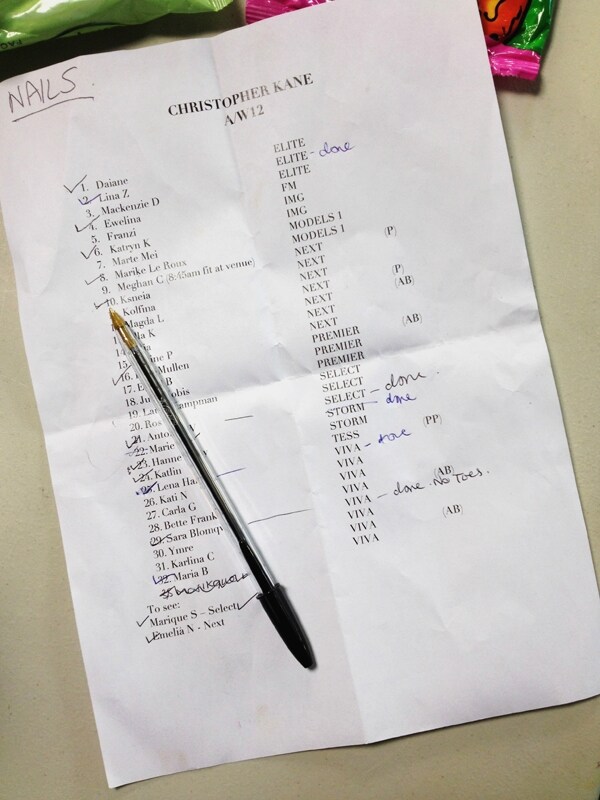 NAILS
CHRISTOPHER KANE
A/W12
1. Daiane
2. Lina Z
3. Mackenzie D
4. Ewelina
5. Franzi
6. Katryn K
7. Marte Mei
8. Marike Le Roux
9. Meghan C (8:45am fit at venue)
10. Ksneia
Kolfina
Magda L
K
14.
15. P
16. Mullen
17. B
18.
19.
20. Ros
21. Anto
22. Marie
23. Hanne
24. Katlin
25. Lena Ha
26. Kati N
27. Carla G
28. Bette Frank
29. Sara Blomq
30. Ymre
31. Karlina C
32. Maria B
To see:
Marique S – Select
Emelia N - Next
ELITE
ELITE - done
ELITE
FM
IMG
IMG
MODELS 1
MODELS 1
NEXT (P)
NEXT
NEXT
NEXT (P)
NEXT (AB)
NEXT
NEXT
PREMIER (AB)
PREMIER
PREMIER
SELECT
SELECT
SELECT - done.
STORM - done
STORM
TESS (PP)
VIVA - done
VIVA
VIVA
VIVA (AB)
VIVA - done. No Toes.
VIVA
VIVA (AB)
VIVA